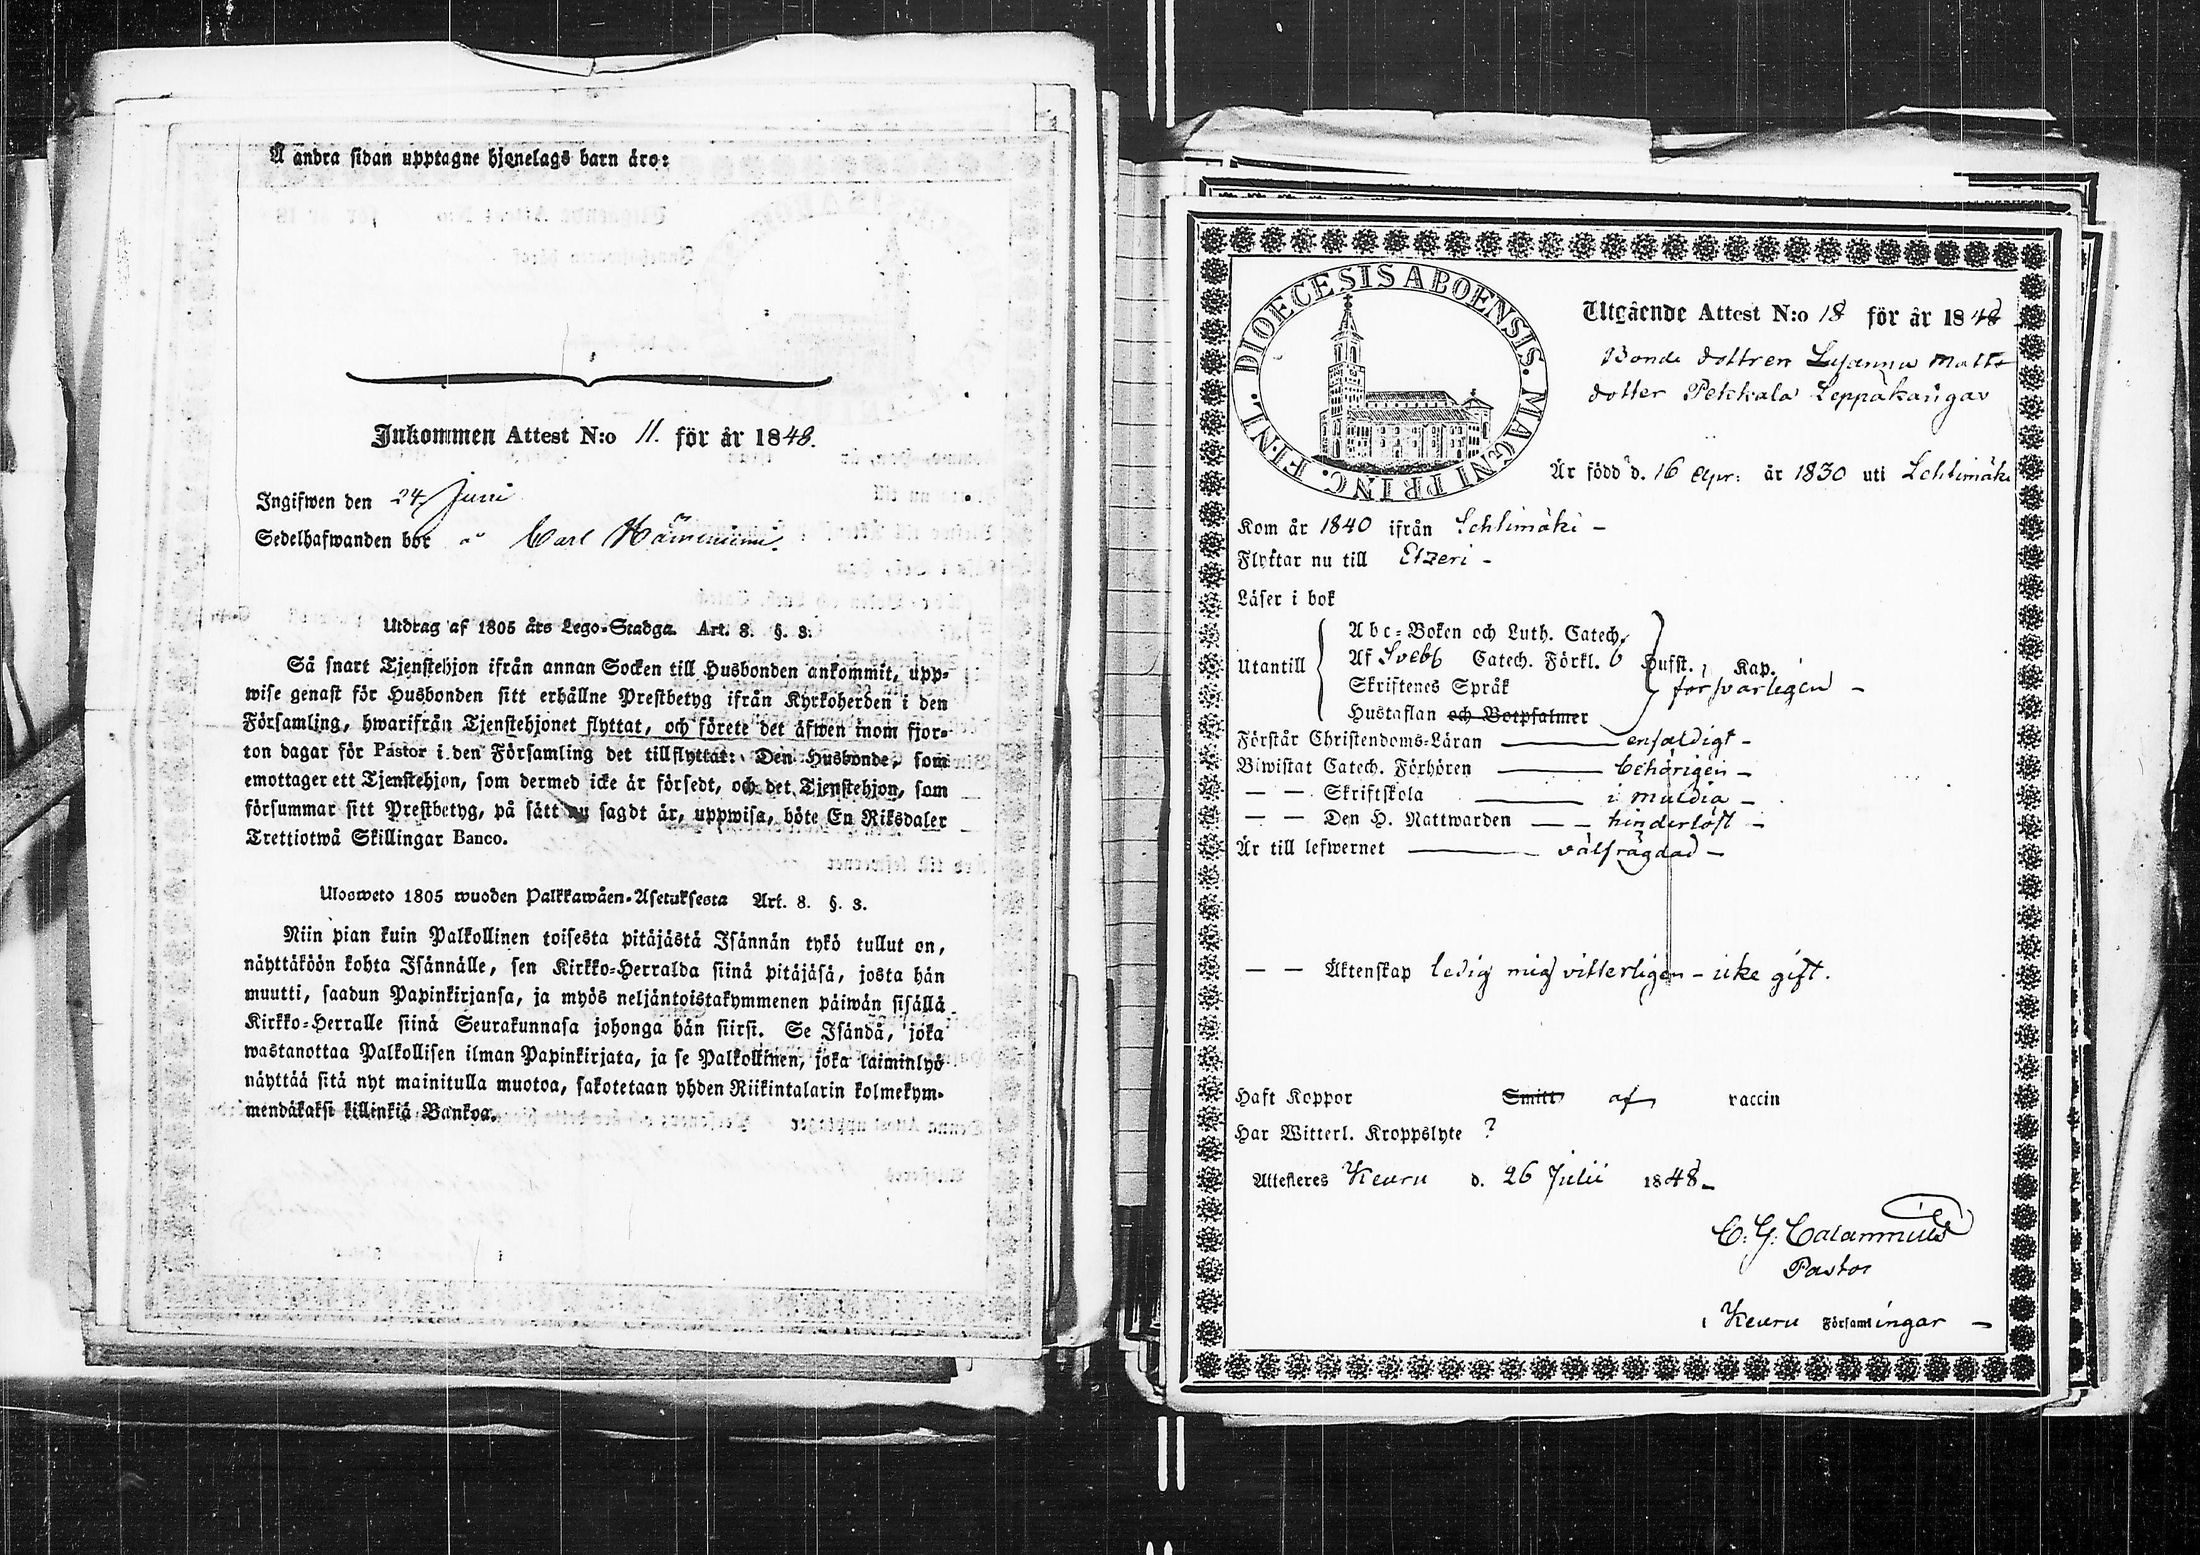 Å andra sidan upptagne hjonelags barn äro:
Inkommen Attest N:o 11. för år 1848.
Ingifwen den 24 Juni
Sedelhafwanden bor å Carl
Utdrag af 1805 års Lego-Stadga. Art. 8. §. 3.
Så snart Tjenstehjon ifrån annan Socken till Husbonden ankommit, upp-
wise genast för Husbonden sitt erhållne Prestbetyg ifrån Kyrkoherden i den
Församling, hwarifrån Tjenstehjonet flyttat, och förete det äfwen inom fjor-
ton dagar för Pastor i den Församling det tillflyttat: Den Husbonde, som
emottager ett Tjenstehjon, som dermed icke är försedt, och det Tjenstehjon, som
försummar sitt Prestbetyg, på sätt nu sagdt är, uppwisa, böte En Riksdaler
Trettiotwå Skillingar Banco.
Ulosweto 1805 wuoden Palkkawäen-Asetuksesta Art. 8. §. 3.
Niin pian kuin Palkollinen toisesta pitäjästä Isännän tykö tullut on,
näyttäköön kohta Isännälle, sen Kirkko-Herralda siinä pitäjäsä, josta hän
muutti, saadun Papinkirjansa, ja myös neljäntoistakymmenen päiwän sisällä
Kirkko-Herralle siinä Seurakunnasa johonga hän siirsi. Se Isändä, joka
wastanottaa Palkollisen ilman Papinkirjata, ja se Palkollinen, joka laiminlyö
näyttää sitä nyt mainitulla muotoa, sakotetaan yhden Riikintalarin kolmekym-
mendäkaksi killinkiä Bankoa.
DIOECESIS ABOENSIS. MAGNI PRINC. FINL.
Utgående Attest N:o 18 för år 1848
Bonde dottren Susanna Matts
dotter Pekkala Leppäkangas
Är född d. 16 Apr: år 1830 uti Lehtimäki
Kom år 1840 ifrån Lehtimäki -
Flyttar nu till Etzeri -
Läser i bok
Abc-Boken och Luth. Catech.
Utantill Af Svebs Catech. Förkl. 6 Hufst. Kap.
Skriftenes Språk försvarligen -
Hustaflan och Botpsalmer
Förstår Christendoms-Läran enfaldigt -
Biwistat Catech. Förhören behörigen -
— — Skriftskola i
— — Den H. Nattwarden hinderlöst -
Är till lefwernet välfrägdad -
— — Äktenskap ledig mig vitterligen - icke gift.
Haft Koppor Smitt af vaccin
Har Witterl. Kroppslyte ?
Attesteres Keuru d. 26 Julii 1848 -
C. G. Calamnius
Pastor
i Keuru Församlingar -